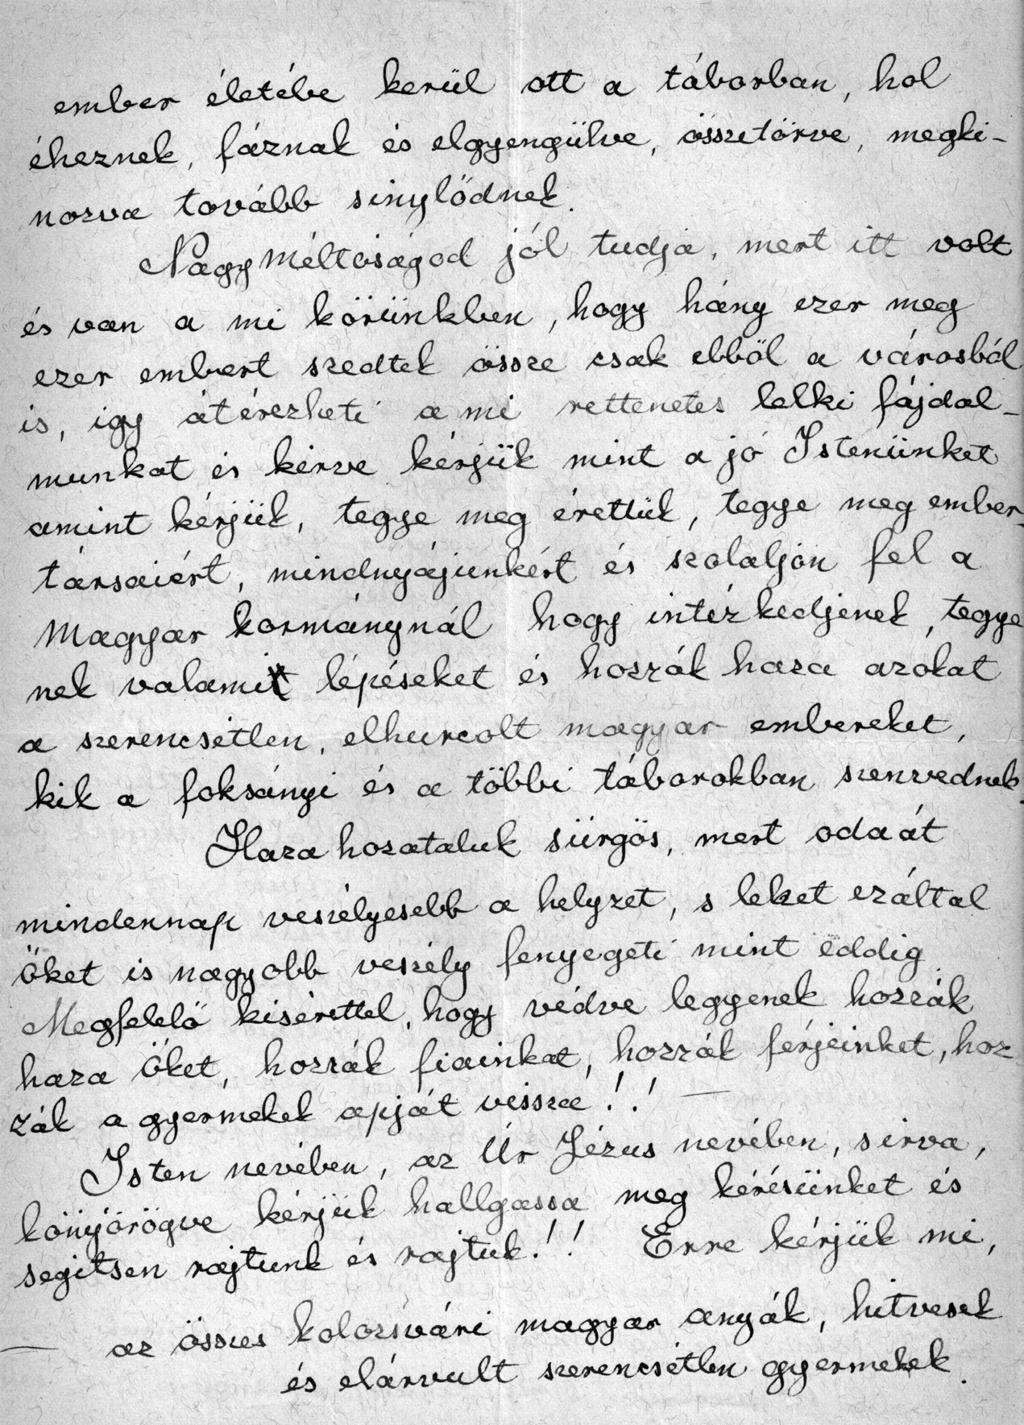 ember életébe kerül ott a táborban, hol
éheznek, fáznak és elgyengülve, összetörve, megki-
nozva tovább sinylődnek.
Nagyméltóságod jól tudja, mert itt volt
és van a mi körünkben, hogy hány ezer meg
ezer embert szedtek össze csak ebből a városból
is, igy átérezheti a mi rettenetes lelki fájdal-
munkat és kérve kérjük mint a jó Istenünket
amint kérjük, tegye meg érettük, tegye meg ember-
társaiért, mindnyájunkért és szolaljon fel a
Magyar kormánynál hogy intézkedjenek, tegye
nek valamit lépéseket és hozzák haza azokat
a szerencsétlen, elhurcolt magyar embereket,
kik a foksányi és a többi táborokban szenvednek.
Haza hozataluk sürgös, mert odaát
mindennap veszélyesebb a helyzet, s leket ezáltal
őket is nagyobb veszély fenyegeti mint eddig.
Megfelelő kisérettel, hogy védve legyenek hozzák
haza őket, hozzák fiainkat, hozzák férjeinket, hoz
zák a gyermekek apját vissza!! —
Isten nevében, az Úr Jézus nevében, sirva,
könyörögve kérjük hallgassa meg kérésünket és
segitsen rajtunk és rajtuk!! Erre kérjük mi,
— az összes kolozsvári magyar anyák, hitvesek
és elárvult szerencsétlen gyermekek.